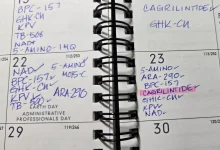 15
BPC-157
GHK-CU
KPV
TB-500
NAD+
5-AMINO-1MQ
CAGRILINTIDE
GHK-CU
22
NAD+ 5-AMINO
BPC-157 MOTS-C
GHK-CU
KPV ARA 290
TB-500
EARTH DAY
ADMINISTRATIVE
PROFESSIONALS DAY
23
5-AMINO
ARA-290
BPC-157
CAGRILINTIDE
GHK-CU
KPV
NAD+
29
30